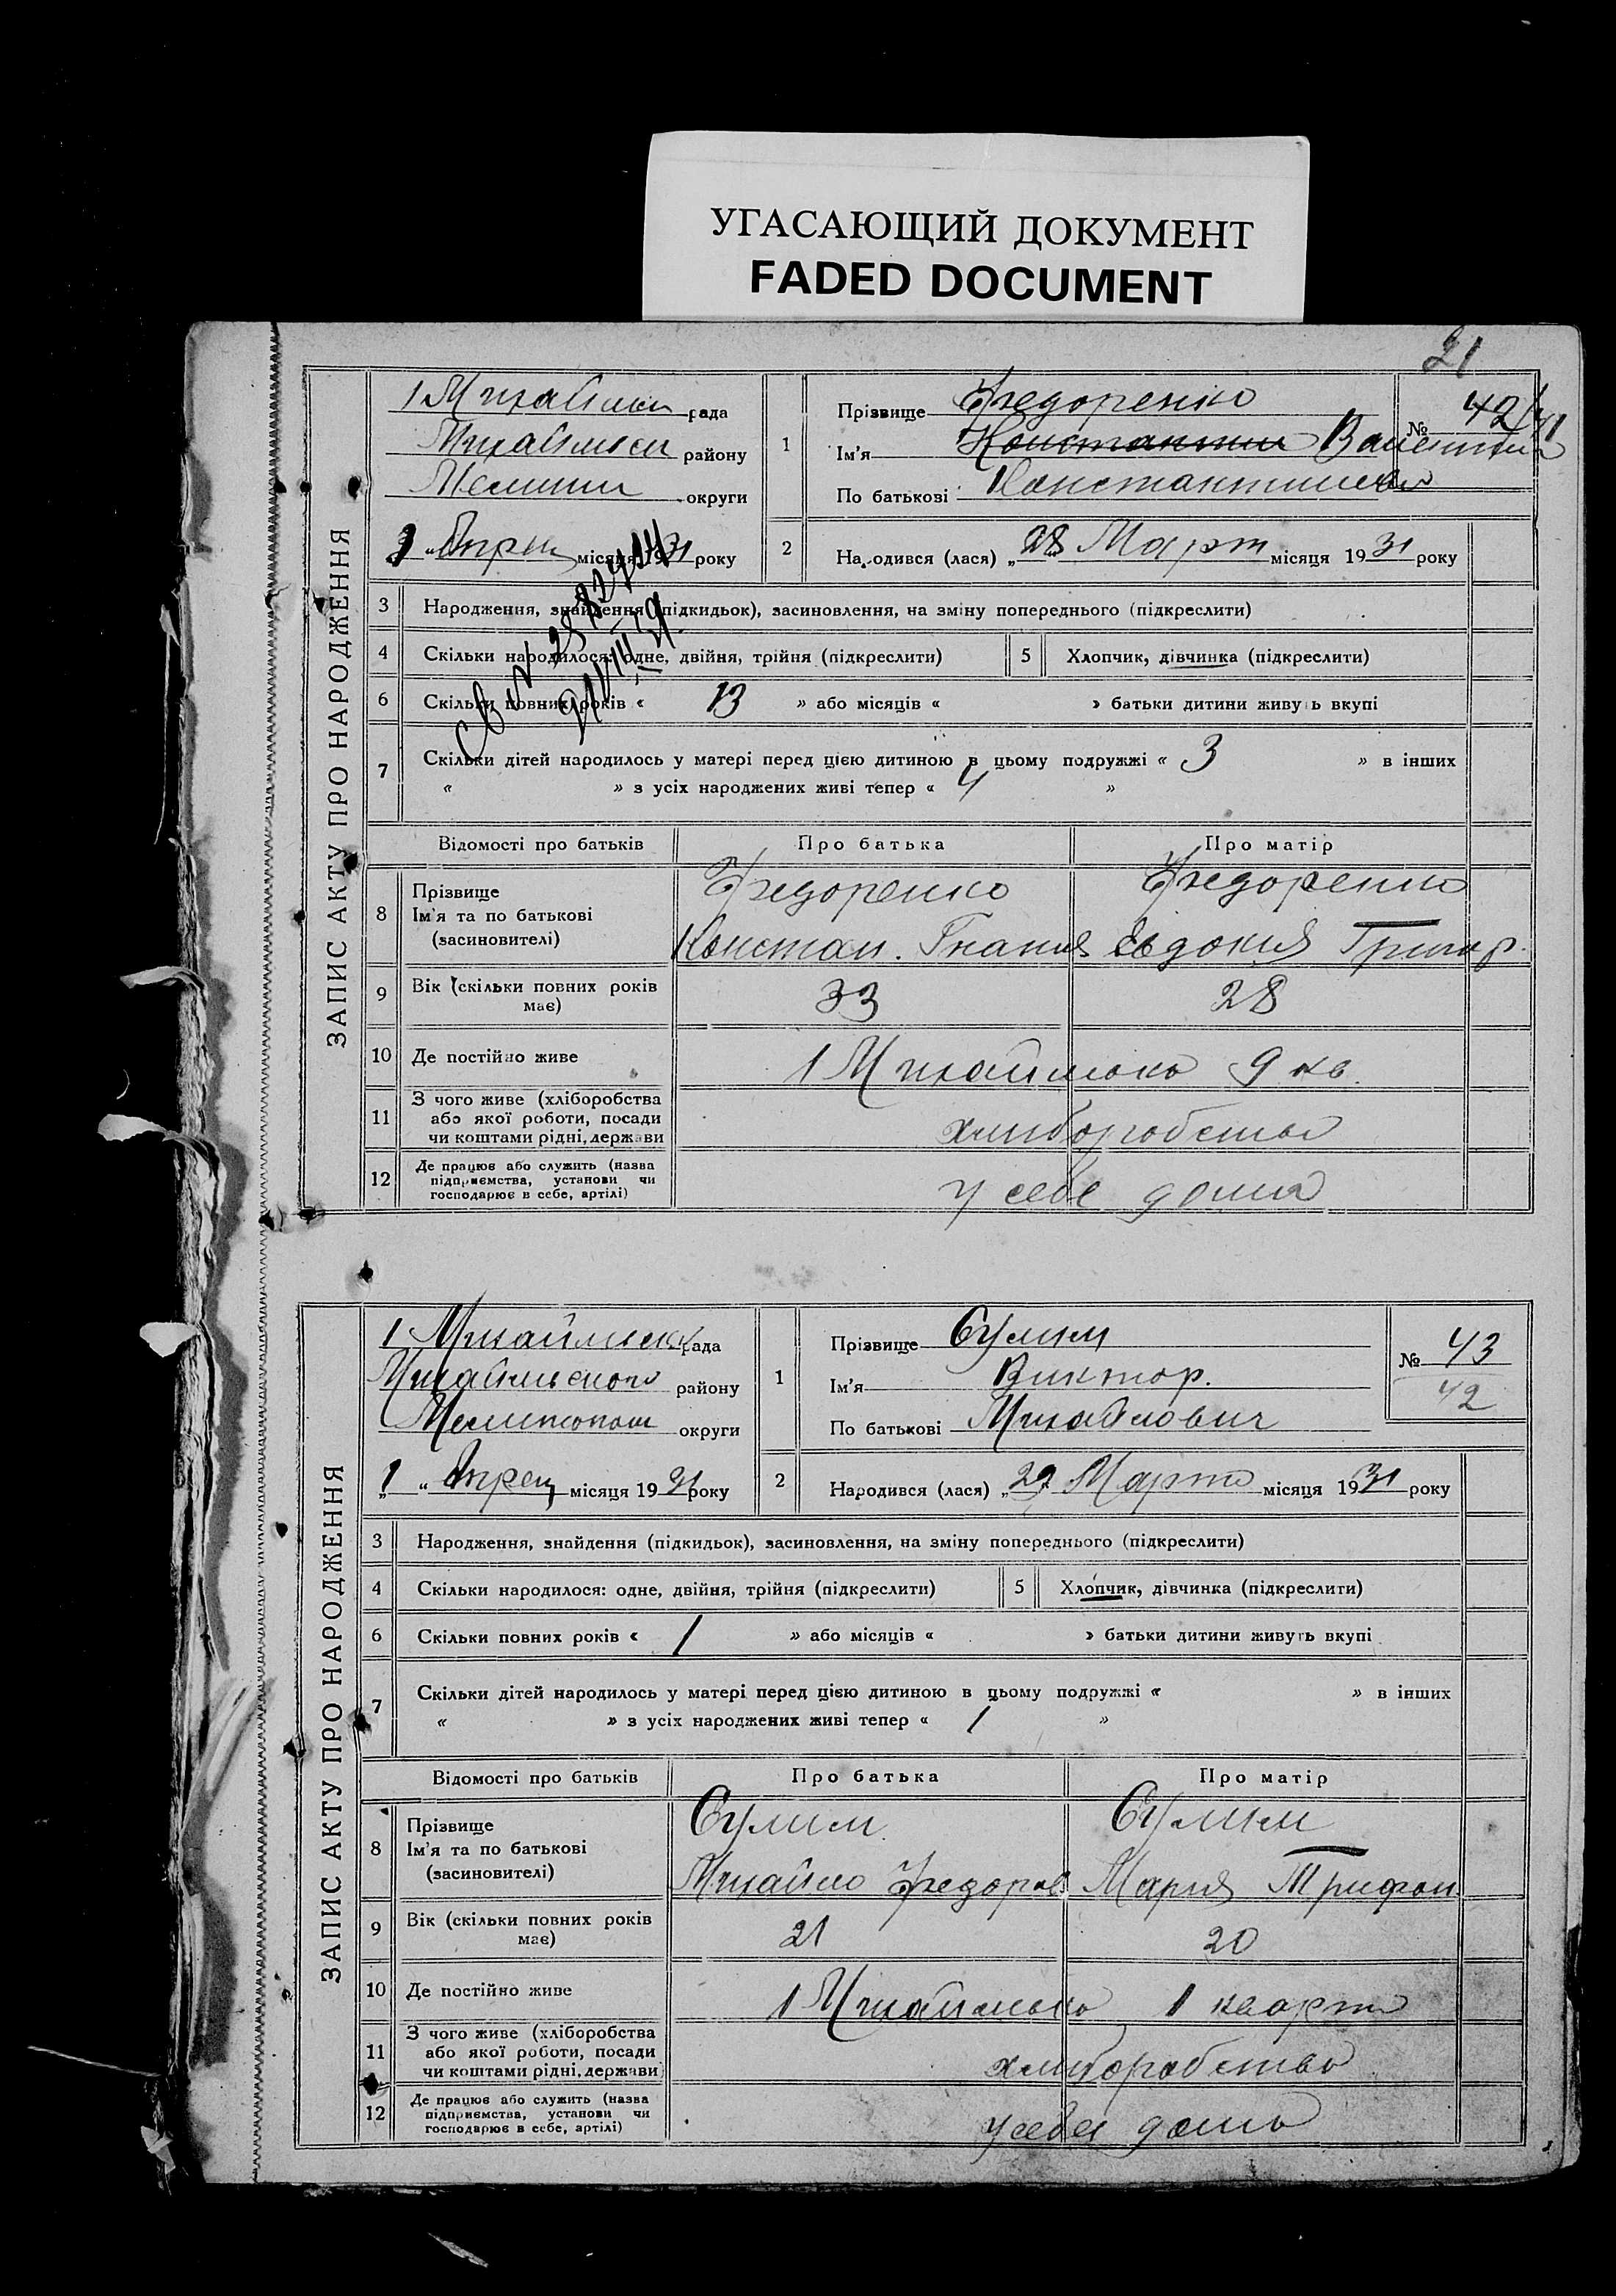 УГАСАЮЩИЙ ДОКУМЕНТ
FADED DOCUMENT
21
ЗАПИС АКТУ ПРО НАРОДЖЕННЯ
рада
району
округи
1 місяця 1931 року
1
Прізвище Федоренко
Ім'я Константин Валентина
По батькові
№ 42/41
2
Народився (лася) „28 Март місяця 1931 року
3 Народження, знайдення (підкидьок), засиновлення, на зміну попереднього (підкреслити)
4 Скільки народилося: одне, двійня, трійня (підкреслити)
5 Хлопчик, дівчинка (підкреслити)
6 Скільки повних років « 13 » або місяців « » батьки дитини живуть вкупі
7 Скільки дітей народилось у матері перед цією дитиною в цьому подружжі « 3 » в інших
« » з усіх народжених живі тепер « 4 »
Відомості про батьків Про батька Про матір
8 Прізвище
Ім'я та по батькові
(засиновителі)
Федоренко Федоренко
Констан. Гнатия Евдокия Григор.
9 Вік (скільки повних років
має)
33 28
10 Де постійно живе
1 Михайлівка 9 кв.
11 З чого живе (хліборобства
або якої роботи, посади
чи коштами рідні, держави
хліборобство
12 Де працює або служить (назва
підприємства, установи чи
господарює в себе, артілі)
у себе дома
ЗАПИС АКТУ ПРО НАРОДЖЕННЯ
1 рада
району
округи
„1 “ місяця 1931 року
1
Прізвище Сулим
Ім'я Виктор.
По батькові Михайлович
№ 43
42
2
Народився (лася) „29 Марта місяця 1931 року
3 Народження, знайдення (підкидьок), засиновлення, на зміну попереднього (підкреслити)
4 Скільки народилося: одне, двійня, трійня (підкреслити)
5 Хлопчик, дівчинка (підкреслити)
6 Скільки повних років « 1 » або місяців « » батьки дитини живуть вкупі
7 Скільки дітей народилось у матері перед цією дитиною в цьому подружжі « » в інших
« » з усіх народжених живі тепер « 1 »
Відомості про батьків Про батька Про матір
8 Прізвище
Ім'я та по батькові
(засиновителі)
Сулим Сулим
Михайло Федоров. Мария Трифон.
9 Вік (скільки повних років
має)
21 20
10 Де постійно живе
1 Михайлівка 1 кварт
11 З чого живе (хліборобства
або якої роботи, посади
чи коштами рідні, держави
хліборобство
12 Де працює або служить (назва
підприємства, установи чи
господарює в себе, артілі)
у себя дома